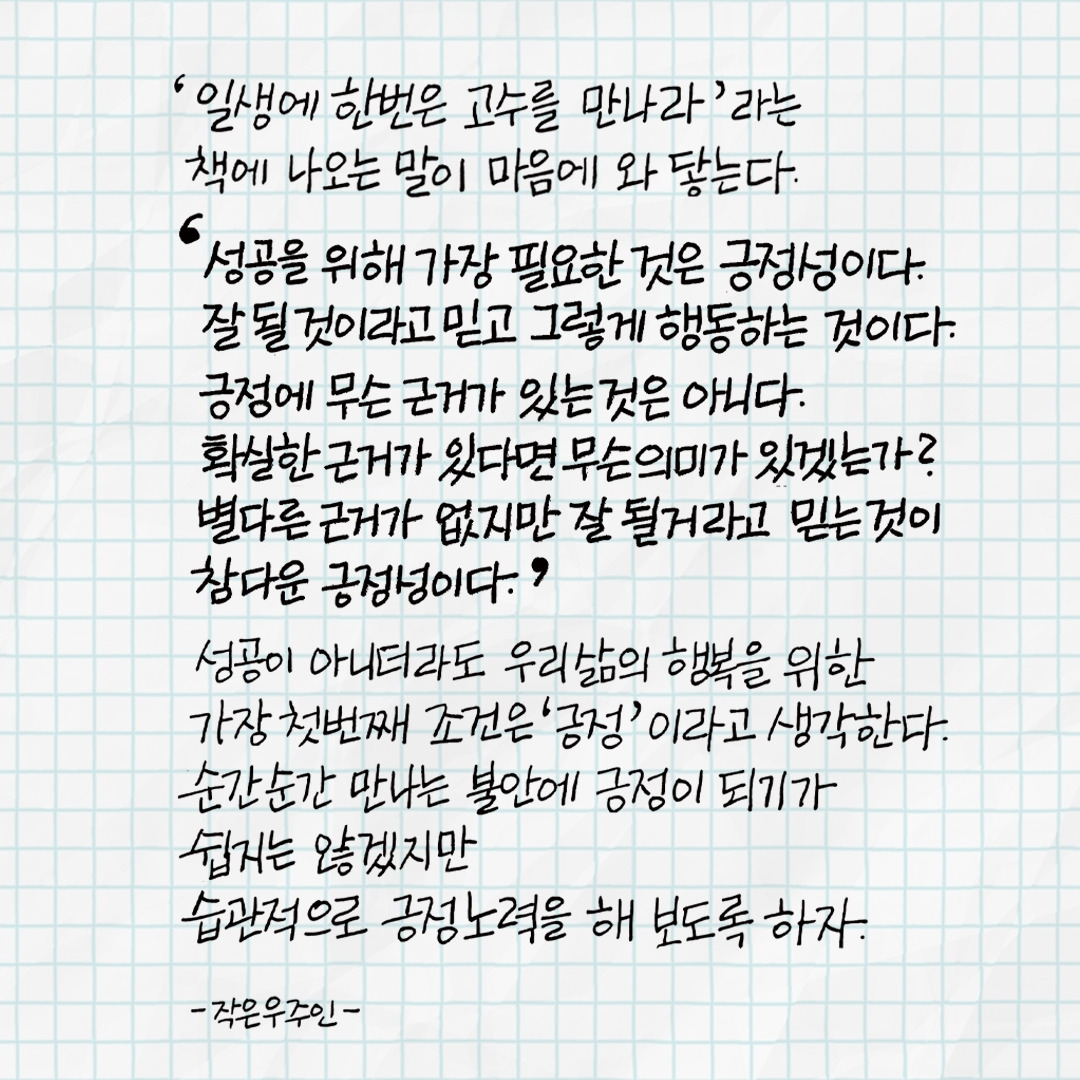 ‘일생에 한번은 고수를 만나라’라는
책에 나오는 말이 마음에 와 닿는다.
‘성공을 위해 가장 필요한 것은 긍정성이다.
잘 될 것이라고 믿고 그렇게 행동하는 것이다.
긍정에 무슨 근거가 있는것은 아니다.
확실한 근거가 있다면 무슨의미가 있겠는가?
별다른 근거가 없지만 잘 될거라고 믿는것이
참다운 긍정성이다.’
성공이 아니더라도 우리삶의 행복을 위한
가장 첫번째 조건은‘긍정’이라고 생각한다.
순간순간 만나는 불안에 긍정이 되기가
쉽지는 않겠지만
습관적으로 긍정노력을 해 보도록 하자.
-작은우주인-